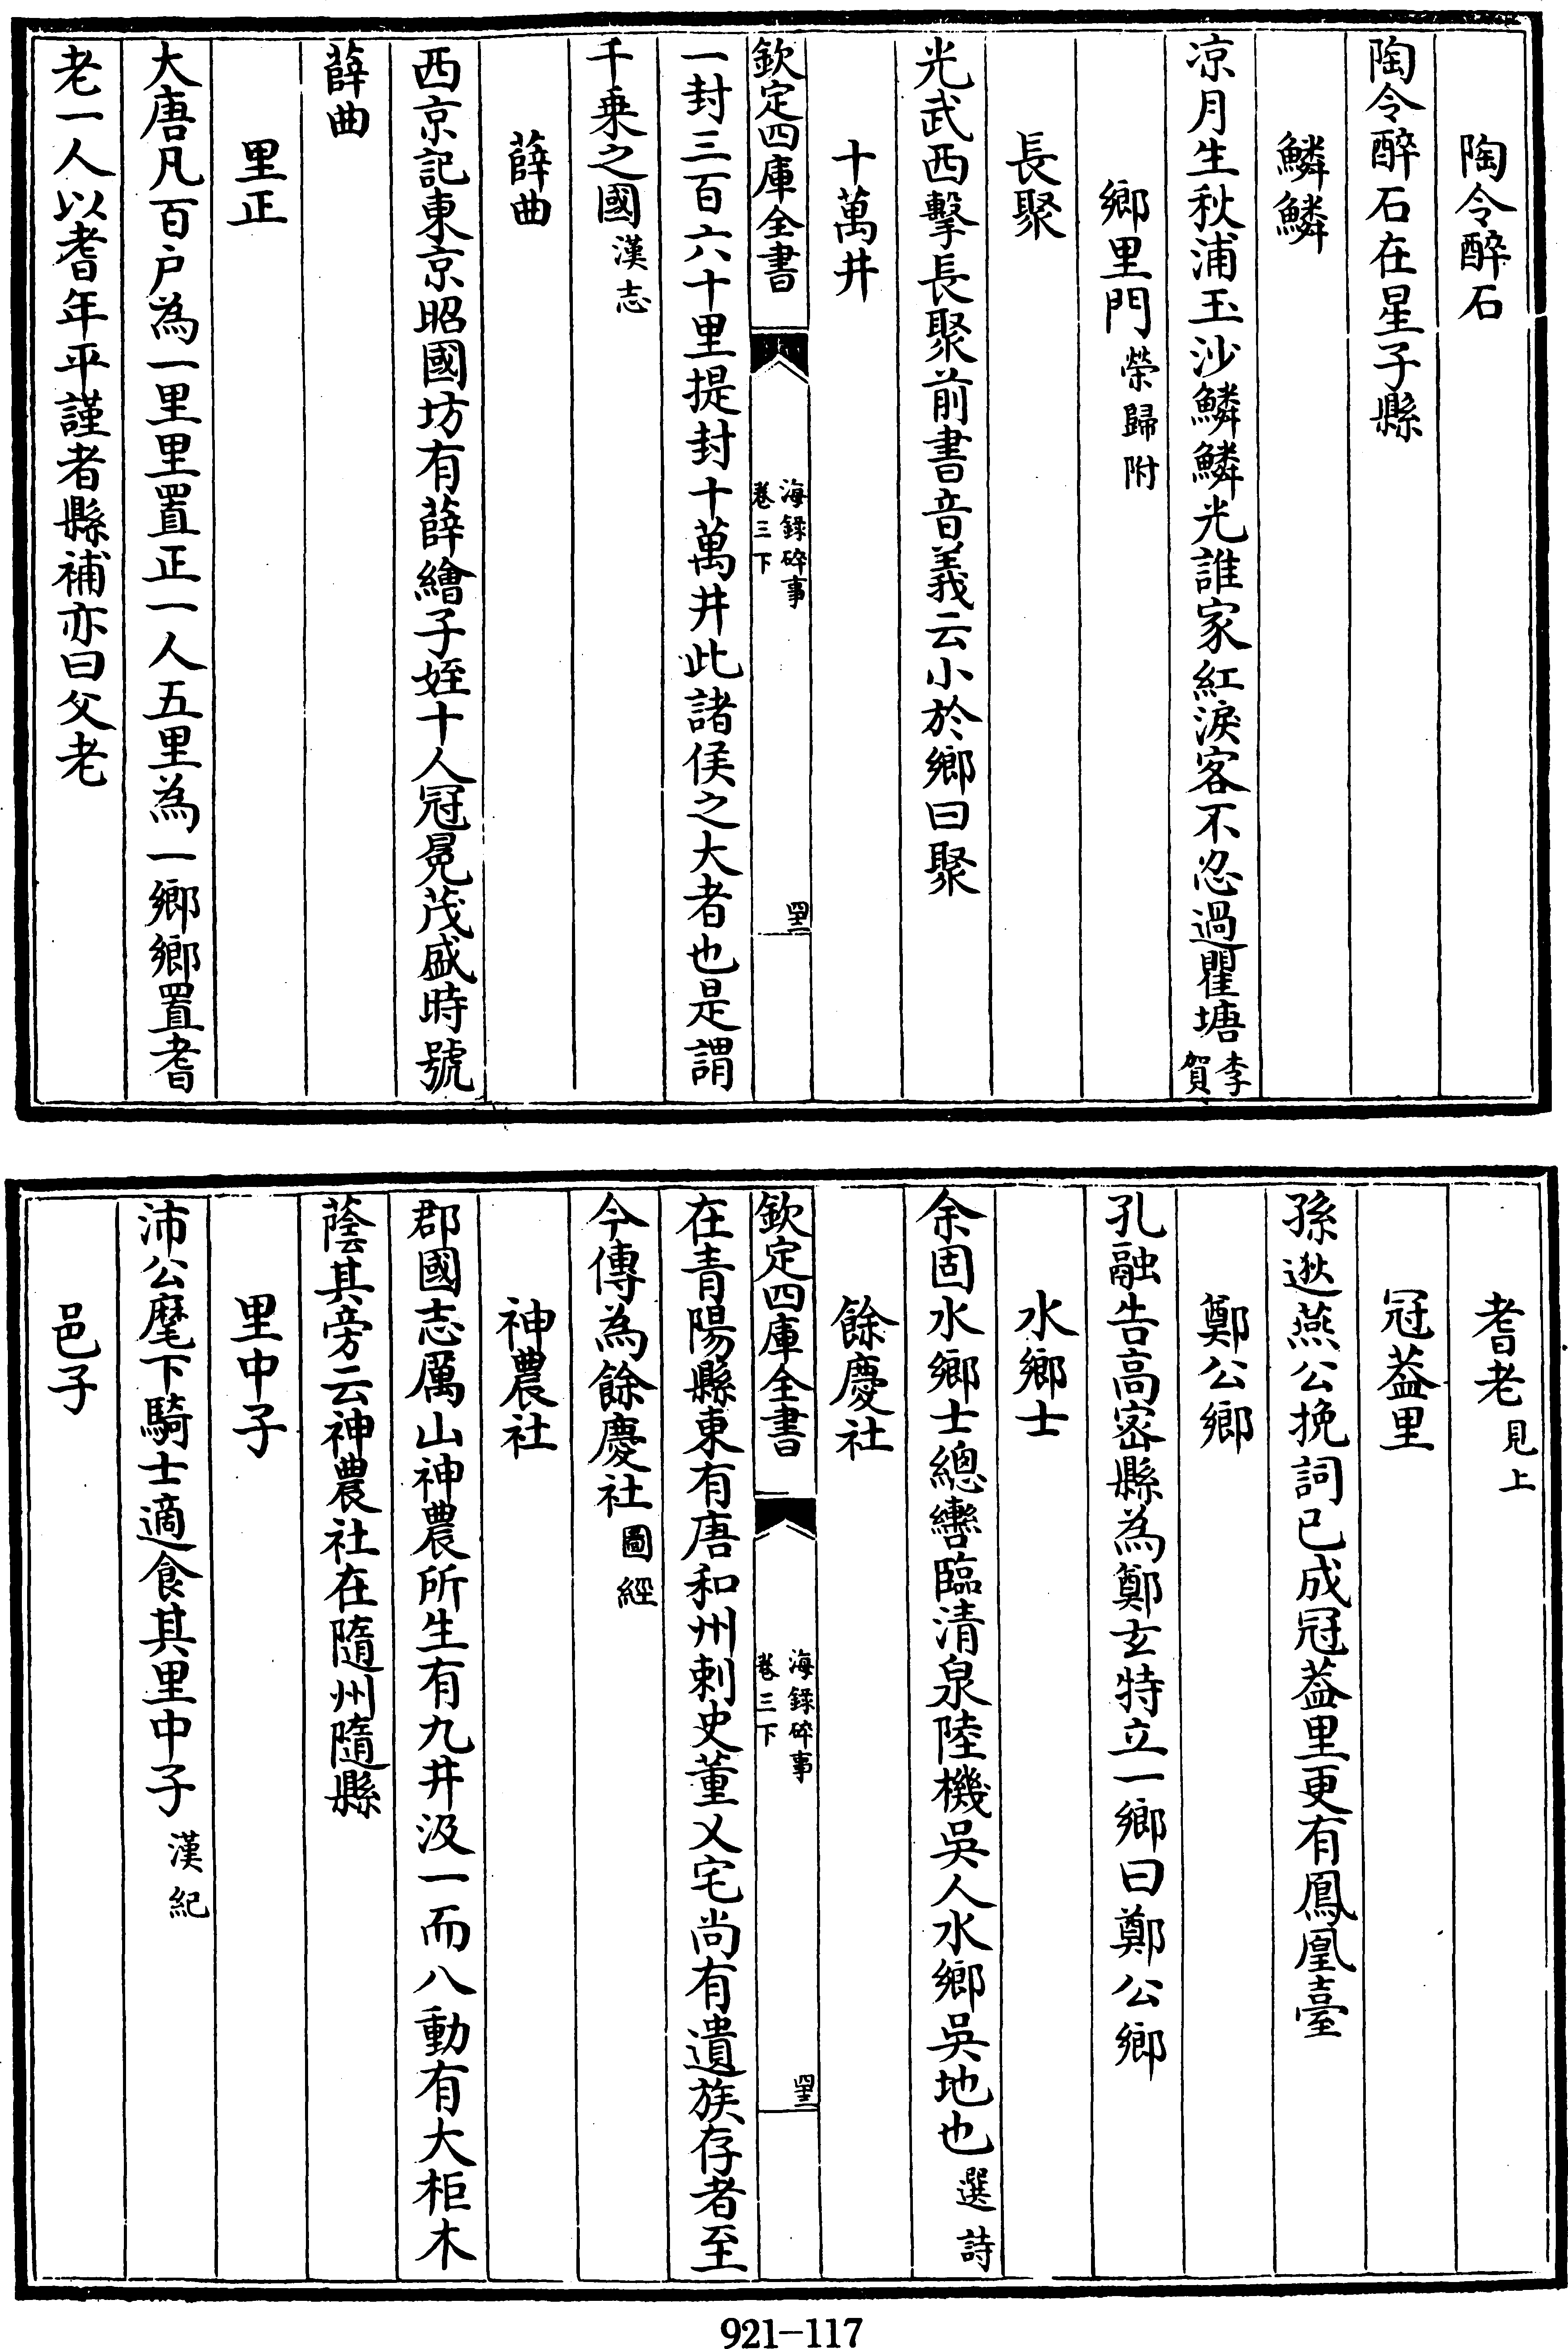 陶令醉石
陶令醉石在星子縣
鱗鱗
凉月生秋浦玉沙鱗鱗光誰家紅淚客不忍過瞿塘李賀
鄉里門榮歸附
長聚
光武西擊長聚前書音義云小於鄉曰聚
十萬井
欽定四庫全書
海録碎事
卷三下
一封三百六十里提封十萬井此諸侯之大者也是謂
千乗之國漢志
薛曲
西京記東京昭國坊有薛繪子姪十人冠冕茂盛時號
薛曲
里正
大唐凡百户為一里里置正一人五里為一鄉鄉置耆
老一人以耆年平謹者縣補亦曰父老
耆老見上
冠葢里
孫逖燕公挽詞已成冠葢里更有鳳凰臺
鄭公鄉
孔融告高宻縣為鄭玄特立一鄉曰鄭公鄉
水鄉士
余固水鄉士總轡臨清泉陸機吳人水鄉吳地也選詩
餘慶社
欽定四庫全書
海録碎事
卷三下
在青陽縣東有唐和州刺史董乂宅尚有遺族存者至
今傳為餘慶社圖經
神農社
郡國志厲山神農所生有九井汲一而八動有大柜木
蔭其旁云神農社在隨州隨縣
里中子
沛公麾下騎士適食其里中子漢紀
邑子
921-117